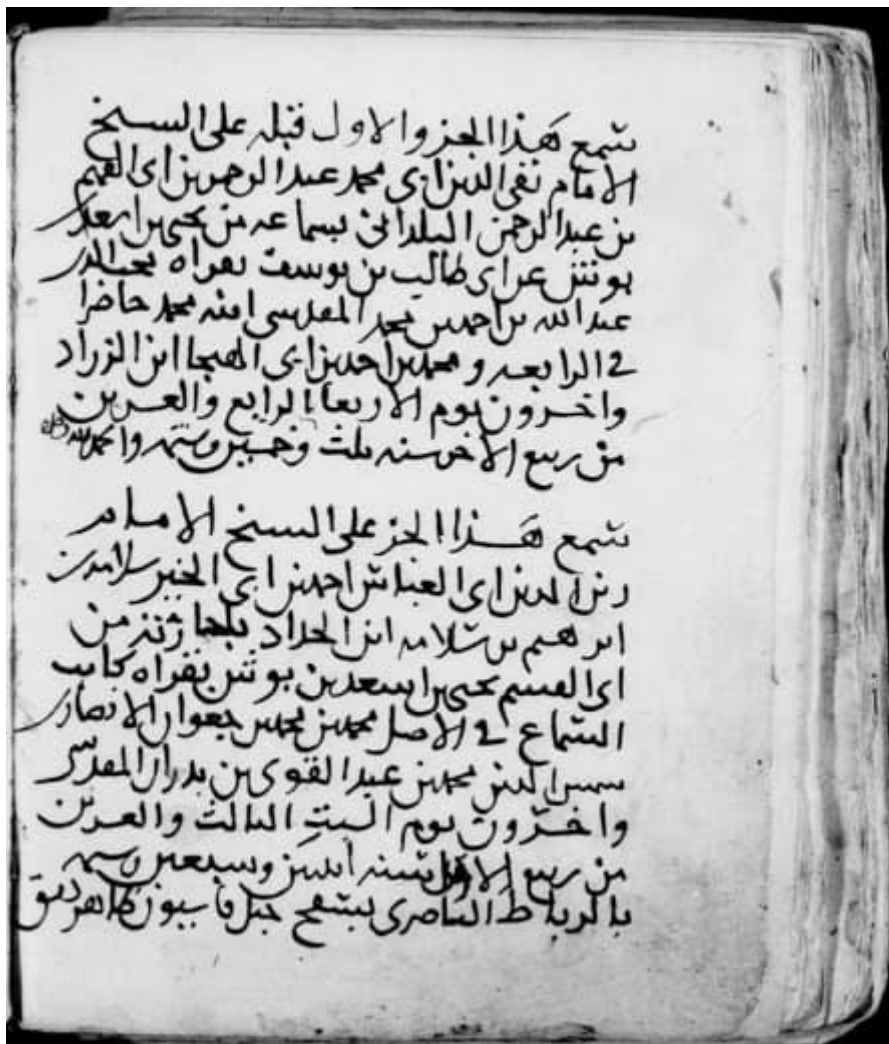 سمع هذا الجزو الاول قبله على الشيخ
الامام تقي الدين ابي محمد عبد الرحمن بن ابي الفهم
بن عبد الرحمن البلداني بسماعه من يحيى بن اسعد بن
بوش عن ابي طالب بن يوسف بقراة محب الدين
عبد الله بن احمد بن محمد المقدسي ابنه محمد حاضرا
في الرابعه و محمد بن احمد بن ابي الهيجا ابن الزراد
واخرون يوم الاربعا الرابع والعشرين
من ربيع الاخر سنه ثلث وخمسين وستمه والحمد لله
سمع هذا الجز على الشيخ الامام
زين الدين ابي العباس احمد بن ابي الخير سلامه بن
ابرهيم بن سلامه ابن الحداد باجازته من
ابي القسم يحيى بن اسعد بن بوش بقراه كاتب
السماع في الاصل محمد بن محمد بن جعوان الانصاري
شمس الدين محمد بن عبد القوي بن بدران المقدسي
واخرون يوم السبت الثالث والعشرين
من ربيع الاول سنه اثنتين وسبعين وستمه
بالرباط الناصري بسفح جبل قاسيون ظاهر دمشق